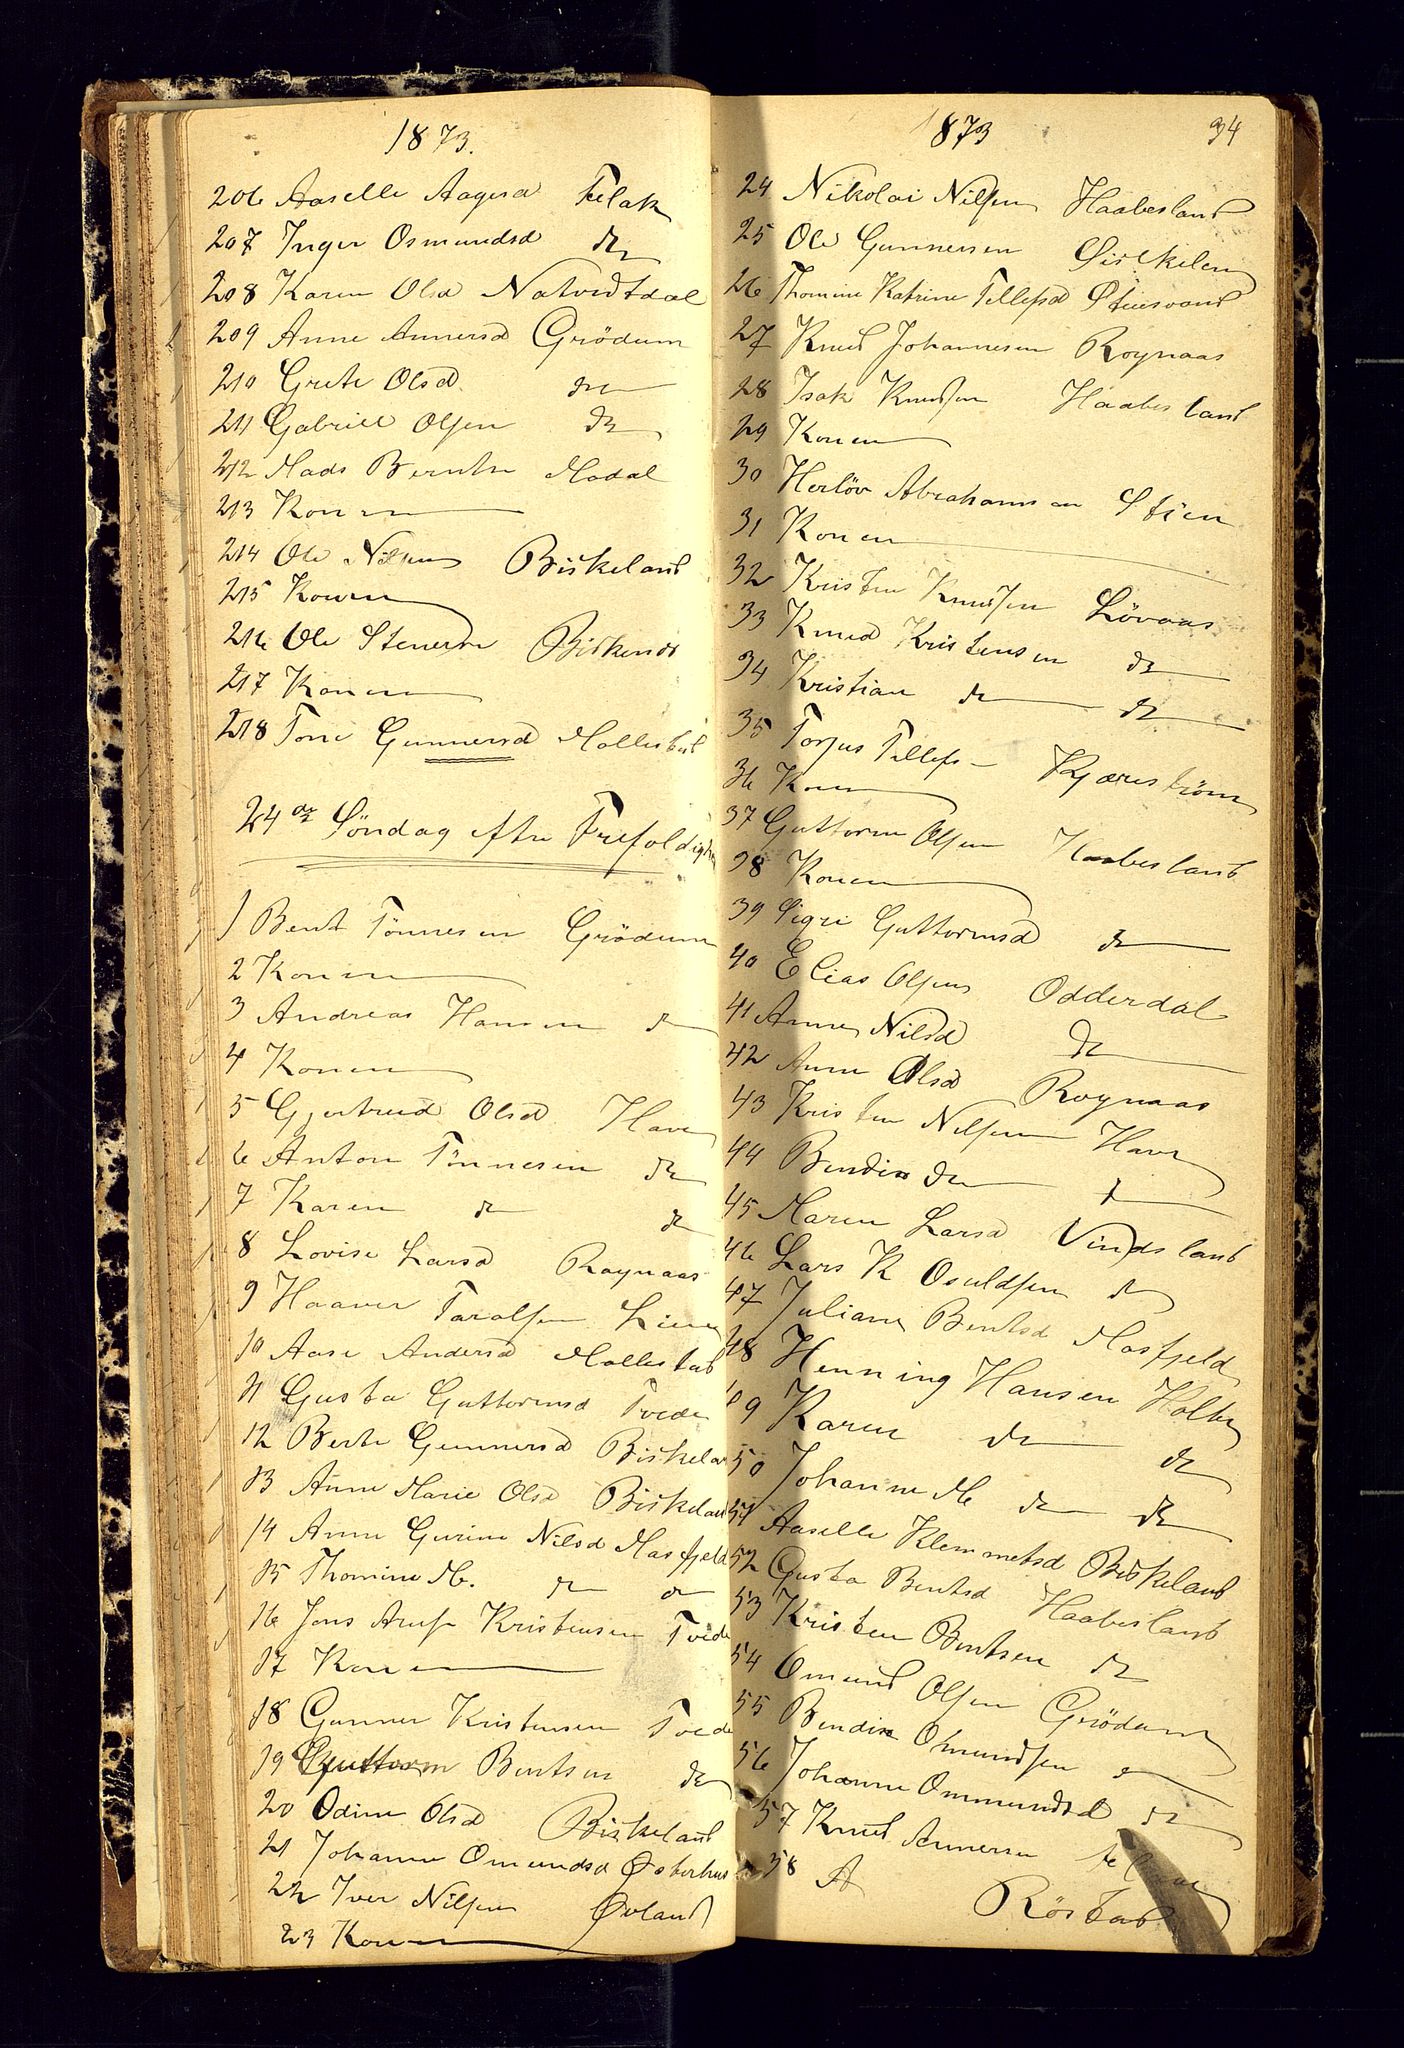 1873.
206 Aaselle Aagesd Felak
207 Inger Osmundsd do
208 Karen Olsd Natvedtdal
209 Anne Annersd Grödum
210 Grete Olsd do
211 Gabriel Olsen do
212 Mads Berntsn Modal
213 Konen
214 Ole Nilsen Birkeland
215 Konen
216 Ole Stenersn Birkenes
217 Konen
218 Tone Gunnersd Mollestad
24de Söndag efter Trefoldighed
1 Bent Tönnesen Grödum
2 Konen
3 Andreas Hansen do
4 Konen
5 Gjertrud Olsd Have
6 Anton Tönnesen do
7 Karen do do
8 Lovise Larsd Roynaas
9 Haaver Taralsen Lien
10 Aase Andersd Mollestad
11 Gusta Guttormsd Tvede
12 Berte Gunnersd Birkeland
13 Anne Marie Olsd Birkeland
14 Anne Gurine Nilsd Masfjeld
15 Thomine M. do do
16 Jens Kristensen Tvede
17 Konen
18 Gunner Kristensen Tvede
19 Guttorm Bentsen do
20 Odine Olsd Birkeland
21 Johanne Omundsd Østerhus
22 Iver Nilsen Øvland
23 Konen
1873 34
24 Nikolai Nilsen Haabesland
25 Ole Gunnersen
26 Thomine Katrine Tellefsd Stiesvand
27 Knud Johannesen Roynaas
28 Isak Knudsen Haabesland
29 Konen
30 Herlöv Abrahamsen Stien
31 Konen
32 Kristen Knudsen Lövaas
33 Knud Kristensen do
34 Kristian do do
35 Torjus Tellefs Kjærestrøm
36 Konen
37 Guttorm Olsen Haabesland
38 Konen
39 Sigri Guttormsd do
40 Elias Olsen Odderdal
41 Anne Nilsd do
42 Anne Olsd Roynaas
43 Kristen Nilsen Have
44 Bendix do do
45 Maren Larsd Vindsland
46 Lars K Osuldsen do
47 Juliane Bentsd Masfjeld
48 Henning Hansen Holte
49 Karen do do
50 Johanne M do do
51 Aaselle Klemmetsd Birkeland
52 Gusta Bentsd Haabesland
53 Kristen Bentsen do
54 Omund Olsen Grödum
55 Bendix Omundsen do
56 Johanne Ommundsd do
57 Knud Annersen
58 A
Röstad